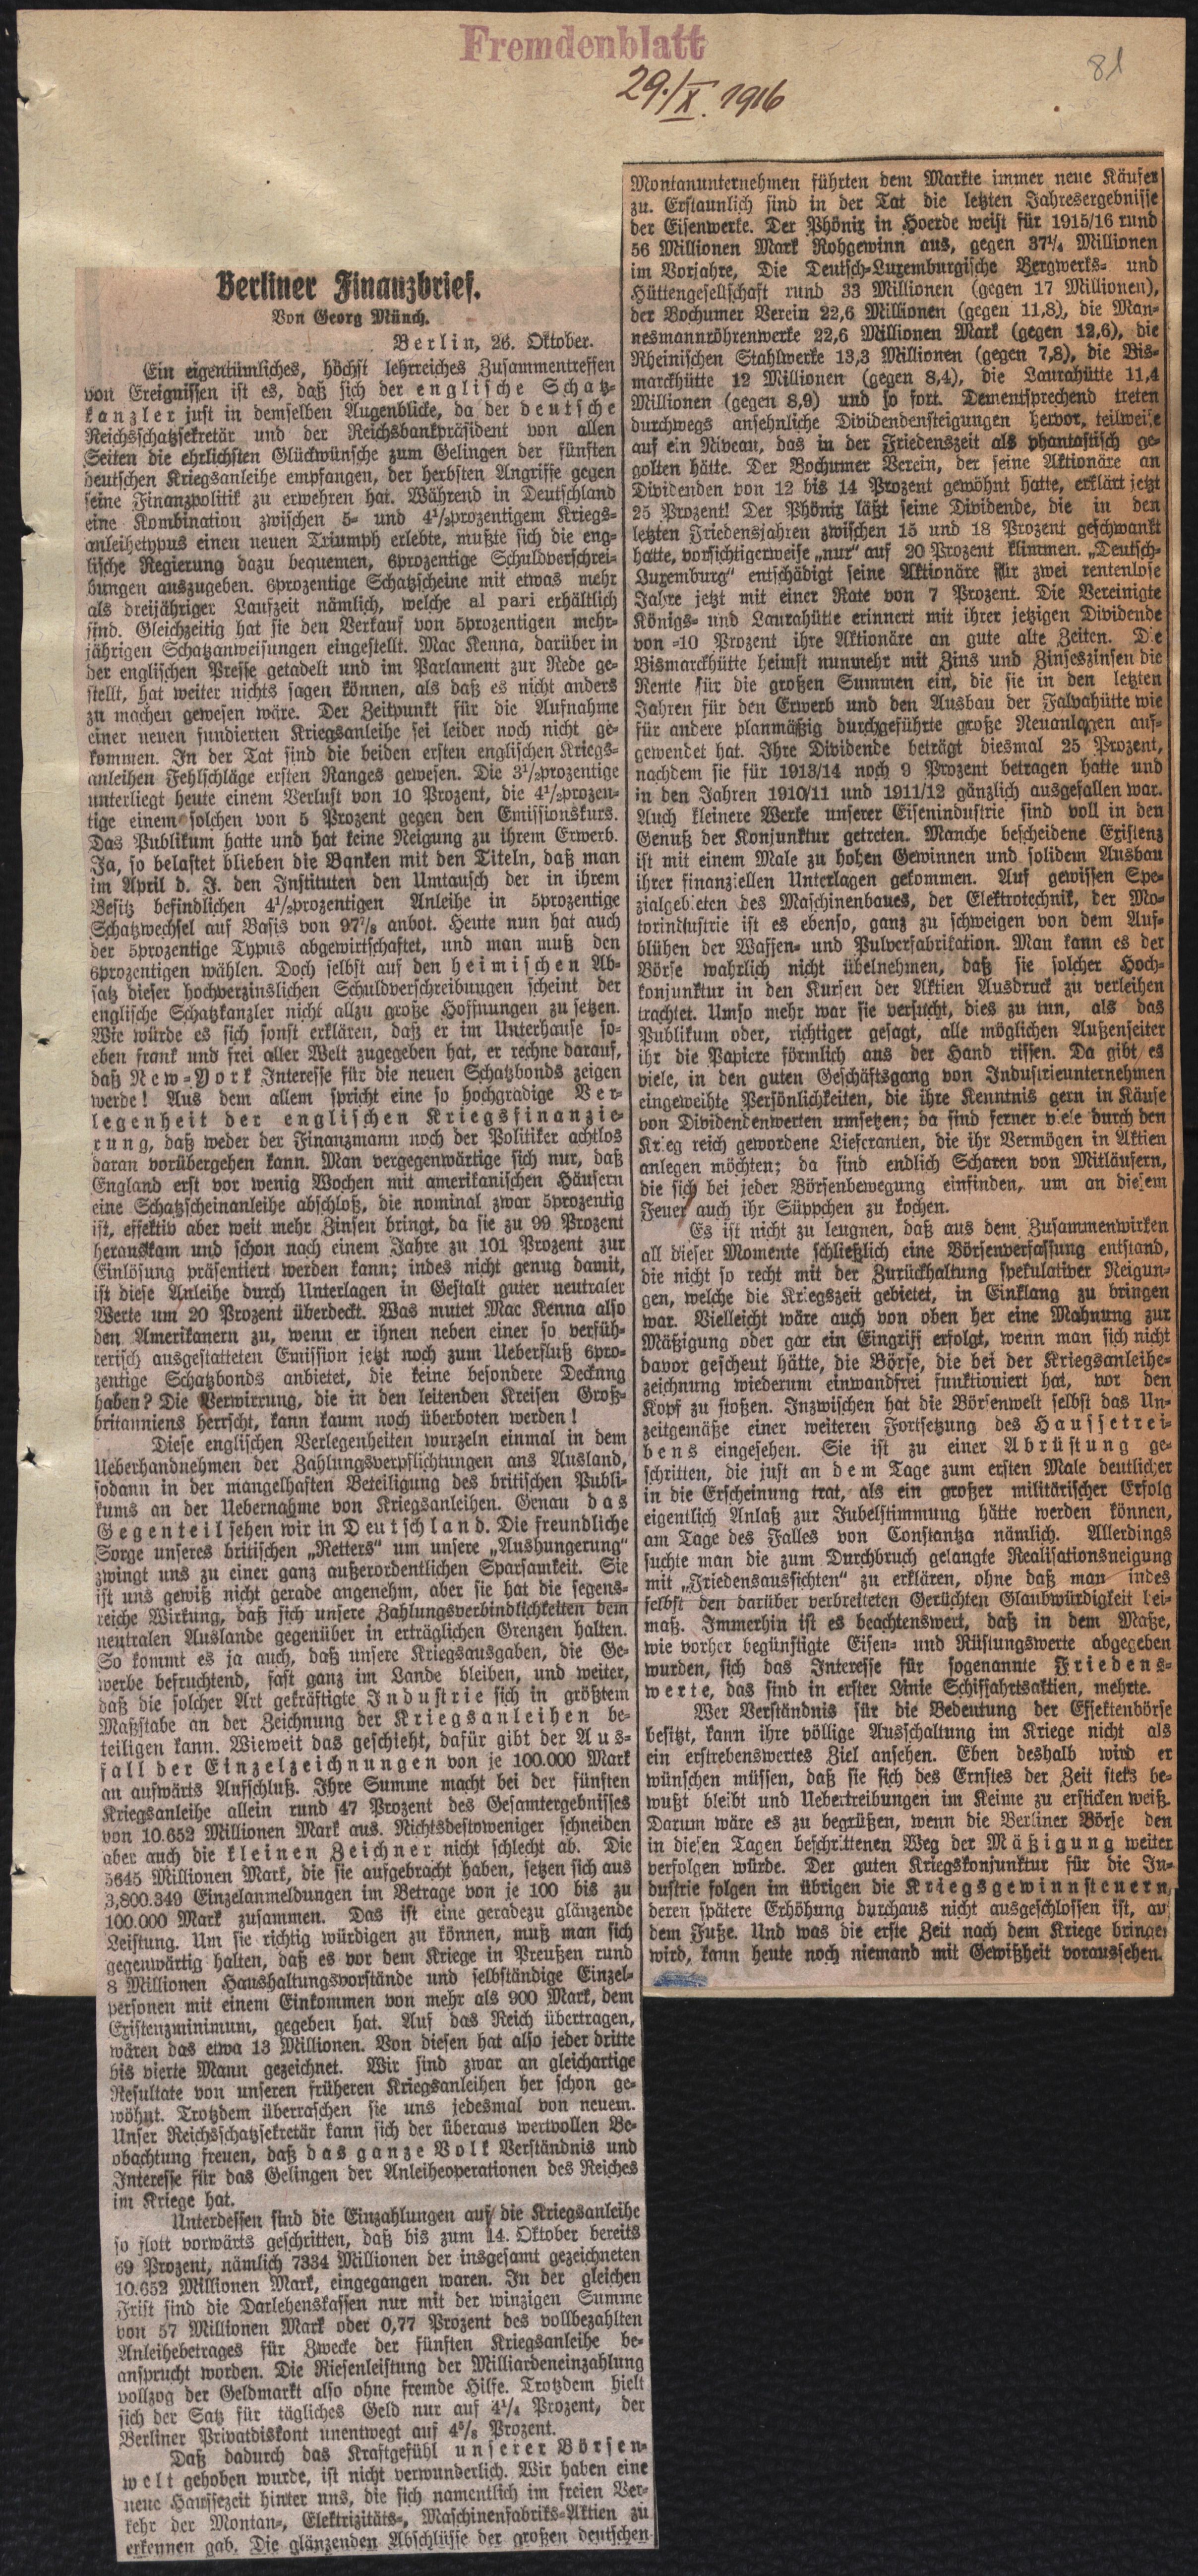 Fremdenblatt
29./X. 1916
81
Berliner Finanzbrief.
Von Georg Münch.
Berlin, 26. Oktober.
Ein eigentümliches, höchst lehrreiches Zusammentreffen
von Ereignissen ist es, daß sich der englische Schatz-
kanzler just in demselben Augenblicke, da der deutsche
Reichsschatzsekretär und der Reichsbankpräsident von allen
Seiten die ehrlichsten Glückwünsche zum Gelingen der fünften
deutschen Kriegsanleihe empfangen, der herbsten Angriffe gegen
seine Finanzpolitik zu erwehren hat. Während in Deutschland
eine Kombination zwischen 5- und 4½prozentigem Kriegs-
anleihetypus einen neuen Triumph erlebte, mußte sich die eng-
lische Regierung dazu bequemen, 6prozentige Schuldverschrei-
bungen auszugeben. 6prozentige Schatzscheine mit etwas mehr
als dreijähriger Laufzeit nämlich, welche al pari erhältlich
sind. Gleichzeitig hat sie den Verkauf von 5prozentigen mehr-
jährigen Schatzanweisungen eingestellt. Mac Kenna, darüber in
der englischen Presse getadelt und im Parlament zur Rede ge-
stellt, hat weiter nichts sagen können, als daß es nicht anders
zu machen gewesen wäre. Der Zeitpunkt für die Aufnahme
einer neuen fundierten Kriegsanleihe sei leider noch nicht ge-
kommen. In der Tat sind die beiden ersten englischen Kriegs-
anleihen Fehlschläge ersten Ranges gewesen. Die 3½prozentige
unterliegt heute einem Verlust von 10 Prozent, die 4½prozen-
tige einem solchen von 5 Prozent gegen den Emissionskurs.
Das Publikum hatte und hat keine Neigung zu ihrem Erwerb.
Ja, so belastet blieben die Banken mit den Titeln, daß man
im April d. J. den Instituten den Umtausch der in ihrem
Besitz befindlichen 4½prozentigen Anleihe in 5prozentige
Schatzwechsel auf Basis von 97⅞ anbot. Heute nun hat auch
der 5prozentige Typus abgewirtschaftet, und man muß den
6prozentigen wählen. Doch selbst auf den heimischen Ab-
satz dieser hochverzinslichen Schuldverschreibungen scheint der
englische Schatzkanzler nicht allzu große Hoffnungen zu setzen.
Wie würde es sich sonst erklären, daß er im Unterhause so-
eben frank und frei aller Welt zugegeben hat, er rechne darauf,
daß New-York Interesse für die neuen Schatzbonds zeigen
werde! Aus dem allem spricht eine so hochgradige Ver-
legenheit der englischen Kriegsfinanzie-
rung, daß weder der Finanzmann noch der Politiker achtlos
daran vorübergehen kann. Man vergegenwärtige sich nur, daß
England erst vor wenig Wochen mit amerikanischen Häusern
eine Schatzscheinanleihe abschloß, die nominal zwar 5prozentig
ist, effektiv aber weit mehr Zinsen bringt, da sie zu 99 Prozent
herauskam und schon nach einem Jahre zu 101 Prozent zur
Einlösung präsentiert werden kann; indes nicht genug damit,
ist diese Anleihe durch Unterlagen in Gestalt guter neutraler
Werte um 20 Prozent überdeckt. Was mutet Mac Kenna also
den Amerikanern zu, wenn er ihnen neben einer so verfüh-
rerisch ausgestatteten Emission jetzt noch zum Ueberfluß 6pro-
zentige Schatzbonds anbietet, die keine besondere Deckung
haben? Die Verwirrung, die in den leitenden Kreisen Groß-
britanniens herrscht, kann kaum noch überboten werden!
Diese englischen Verlegenheiten wurzeln einmal in dem
Ueberhandnehmen der Zahlungsverpflichtungen ans Ausland,
sodann in der mangelhaften Beteiligung des britischen Publi-
kums an der Uebernahme von Kriegsanleihen. Genau das
Gegenteil sehen wir in Deutschland. Die freundliche
Sorge unseres britischen „Retters“ um unsere „Aushungerung“
zwingt uns zu einer ganz außerordentlichen Sparsamkeit. Sie
ist uns gewiß nicht gerade angenehm, aber sie hat die segens-
reiche Wirkung, daß sich unsere Zahlungsverbindlichkeiten dem
neutralen Auslande gegenüber in erträglichen Grenzen halten.
So kommt es ja auch, daß unsere Kriegsausgaben, die Ge-
werbe befruchtend, fast ganz im Lande bleiben, und weiter,
daß die solcher Art gekräftigte Industrie sich in größtem
Maßstabe an der Zeichnung der Kriegsanleihen be-
teiligen kann. Wieweit das geschieht, dafür gibt der Aus-
fall der Einzelzeichnungen von je 100.000 Mark
an aufwärts Aufschluß. Ihre Summe macht bei der fünften
Kriegsanleihe allein rund 47 Prozent des Gesamtergebnisses
von 10.652 Millionen Mark aus. Nichtsdestoweniger schneiden
aber auch die kleinen Zeichner nicht schlecht ab. Die
5645 Millionen Mark, die sie aufgebracht haben, setzen sich aus
3,800.349 Einzelanmeldungen im Betrage von je 100 bis zu
100.000 Mark zusammen. Das ist eine geradezu glänzende
Leistung. Um sie richtig würdigen zu können, muß man sich
gegenwärtig halten, daß es vor dem Kriege in Preußen rund
8 Millionen Haushaltungsvorstände und selbständige Einzel-
personen mit einem Einkommen von mehr als 900 Mark, dem
Existenzminimum, gegeben hat. Auf das Reich übertragen,
wären das etwa 13 Millionen. Von diesen hat also jeder dritte
bis vierte Mann gezeichnet. Wir sind zwar an gleichartige
Resultate von unseren früheren Kriegsanleihen her schon ge-
wöhnt. Trotzdem überraschen sie uns jedesmal von neuem.
Unser Reichsschatzsekretär kann sich der überaus wertvollen Be-
obachtung freuen, daß das ganze Volk Verständnis und
Interesse für das Gelingen der Anleiheoperationen des Reiches
im Kriege hat.
Unterdessen sind die Einzahlungen auf die Kriegsanleihe
so flott vorwärts geschritten, daß bis zum 14. Oktober bereits
69 Prozent, nämlich 7334 Millionen der insgesamt gezeichneten
10.652 Millionen Mark, eingegangen waren. In der gleichen
Frist sind die Darlehenskassen nur mit der winzigen Summe
von 57 Millionen Mark oder 0,77 Prozent des vollbezahlten
Anleihebetrages für Zwecke der fünften Kriegsanleihe be-
ansprucht worden. Die Riesenleistung der Milliardeneinzahlung
vollzog der Geldmarkt also ohne fremde Hilfe. Trotzdem hielt
sich der Satz für tägliches Geld nur auf 4¼ Prozent, der
Berliner Privatdiskont unentwegt auf 4⅝ Prozent.
Daß dadurch das Kraftgefühl unserer Börsen-
welt gehoben wurde, ist nicht verwunderlich. Wir haben eine
neue Haussezeit hinter uns, die sich namentlich im freien Ver-
kehr der Montan-, Elektrizitäts-, Maschinenfabriks-Aktien zu
erkennen gab. Die glänzenden Abschlüsse der großen deutschen
Montanunternehmen führten dem Markte immer neue Käufer
zu. Erstaunlich sind in der Tat die letzten Jahresergebnisse
der Eisenwerke. Der Phönix in Hoerde weist für 1915/16 rund
56 Millionen Mark Rohgewinn aus, gegen 37¼ Millionen
im Vorjahre, Die Deutsch-Luxemburgische Bergwerks- und
Hüttengesellschaft rund 33 Millionen (gegen 17 Millionen),
der Bochumer Verein 22,6 Millionen (gegen 11,8), die Man-
nesmannröhrenwerke 22,6 Millionen Mark (gegen 12,6), die
Rheinischen Stahlwerke 13,3 Millionen (gegen 7,8), die Bis-
marckhütte 12 Millionen (gegen 8,4), die Laurahütte 11,4
Millionen (gegen 8,9) und so fort. Dementsprechend treten
durchwegs ansehnliche Dividendensteigungen hervor, teilweise
auf ein Niveau, das in der Friedenszeit als phantastisch ge-
golten hätte. Der Bochumer Verein, der seine Aktionäre an
Dividenden von 12 bis 14 Prozent gewöhnt hatte, erklärt jetzt
25 Prozent! Der Phönix läßt seine Dividende, die in den
letzten Friedensjahren zwischen 15 und 18 Prozent geschwankt
hatte, vorsichtigerweise „nur“ auf 20 Prozent klimmen. „Deutsch-
Luxemburg“ entschädigt seine Aktionäre für zwei rentenlose
Jahre jetzt mit einer Rate von 7 Prozent. Die Vereinigte
Königs- und Laurahütte erinnert mit ihrer jetzigen Dividende
von 10 Prozent ihre Aktionäre an gute alte Zeiten. Die
Bismarckhütte heimst nunmehr mit Zins und Zinseszinsen die
Rente für die großen Summen ein, die sie in den letzten
Jahren für den Erwerb und den Ausbau der Falvahütte wie
für andere planmäßig durchgeführte große Neuanlagen auf-
gewendet hat. Ihre Dividende beträgt diesmal 25 Prozent,
nachdem sie für 1913/14 noch 9 Prozent betragen hatte und
in den Jahren 1910/11 und 1911/12 gänzlich ausgefallen war.
Auch kleinere Werke unserer Eisenindustrie sind voll in den
Genuß der Konjunktur getreten. Manche bescheidene Existenz
ist mit einem Male zu hohen Gewinnen und solidem Ausbau
ihrer finanziellen Unterlagen gekommen. Auf gewissen Spe-
zialgebieten des Maschinenbaues, der Elektrotechnik, der Mo-
torindustrie ist es ebenso, ganz zu schweigen von dem Auf-
blühen der Waffen- und Pulverfabrikation. Man kann es der
Börse wahrlich nicht übelnehmen, daß sie solcher Hoch-
konjunktur in den Kursen der Aktien Ausdruck zu verleihen
trachtet. Umso mehr war sie versucht, dies zu tun, als das
Publikum oder, richtiger gesagt, alle möglichen Außenseiter
ihr die Papiere förmlich aus der Hand rissen. Da gibt es
viele, in den guten Geschäftsgang von Industrieunternehmen
eingeweihte Persönlichkeiten, die ihre Kenntnis gern in Käufe
von Dividendenwerten umsetzen; da sind ferner viele durch den
Krieg reich gewordene Lieferanten, die ihr Vermögen in Aktien
anlegen möchten; da sind endlich Scharen von Mitläufern,
die sich bei jeder Börsenbewegung einfinden, um an diesem
Feuer auch ihr Süppchen zu kochen.
Es ist nicht zu leugnen, daß aus dem Zusammenwirken
all dieser Momente schließlich eine Börsenverfassung entstand,
die nicht so recht mit der Zurückhaltung spekulativer Neigun-
gen, welche die Kriegszeit gebietet, in Einklang zu bringen
war. Vielleicht wäre auch von oben her eine Mahnung zur
Mäßigung oder gar ein Eingriff erfolgt, wenn man sich nicht
davor gescheut hätte, die Börse, die bei der Kriegsanleihe-
zeichnung wiederum einwandfrei funktioniert hat, vor den
Kopf zu stoßen. Inzwischen hat die Börsenwelt selbst das Un-
zeitgemäße einer weiteren Fortsetzung des Haussetrei-
bens eingesehen. Sie ist zu einer Abrüstung ge-
schritten, die just an dem Tage zum ersten Male deutlicher
in die Erscheinung trat, als ein großer militärischer Erfolg
eigentlich Anlaß zur Jubelstimmung hätte werden können,
am Tage des Falles von Constantza nämlich. Allerdings
suchte man die zum Durchbruch gelangte Realisationsneigung
mit „Friedensaussichten“ zu erklären, ohne daß man indes
selbst den darüber verbreiteten Gerüchten Glaubwürdigkeit bei-
maß. Immerhin ist es beachtenswert, daß in dem Maße,
wie vorher begünstigte Eisen- und Rüstungswerte abgegeben
wurden, sich das Interesse für sogenannte Friedens-
werte, das sind in erster Linie Schiffahrtsaktien, mehrte.
Wer Verständnis für die Bedeutung der Effektenbörse
besitzt, kann ihre völlige Ausschaltung im Kriege nicht als
ein erstrebenswertes Ziel ansehen. Eben deshalb wird er
wünschen müssen, daß sie sich des Ernstes der Zeit stets be-
wußt bleibt und Uebertreibungen im Keime zu ersticken weiß.
Darum wäre es zu begrüßen, wenn die Berliner Börse den
in diesen Tagen beschrittenen Weg der Mäßigung weiter
verfolgen würde. Der guten Kriegskonjunktur für die In-
dustrie folgen im übrigen die Kriegsgewinnsteuern,
deren spätere Erhöhung durchaus nicht ausgeschlossen ist, auf
dem Fuße. Und was die erste Zeit nach dem Kriege bringen
wird, kann heute noch niemand mit Gewißheit voraussehen.